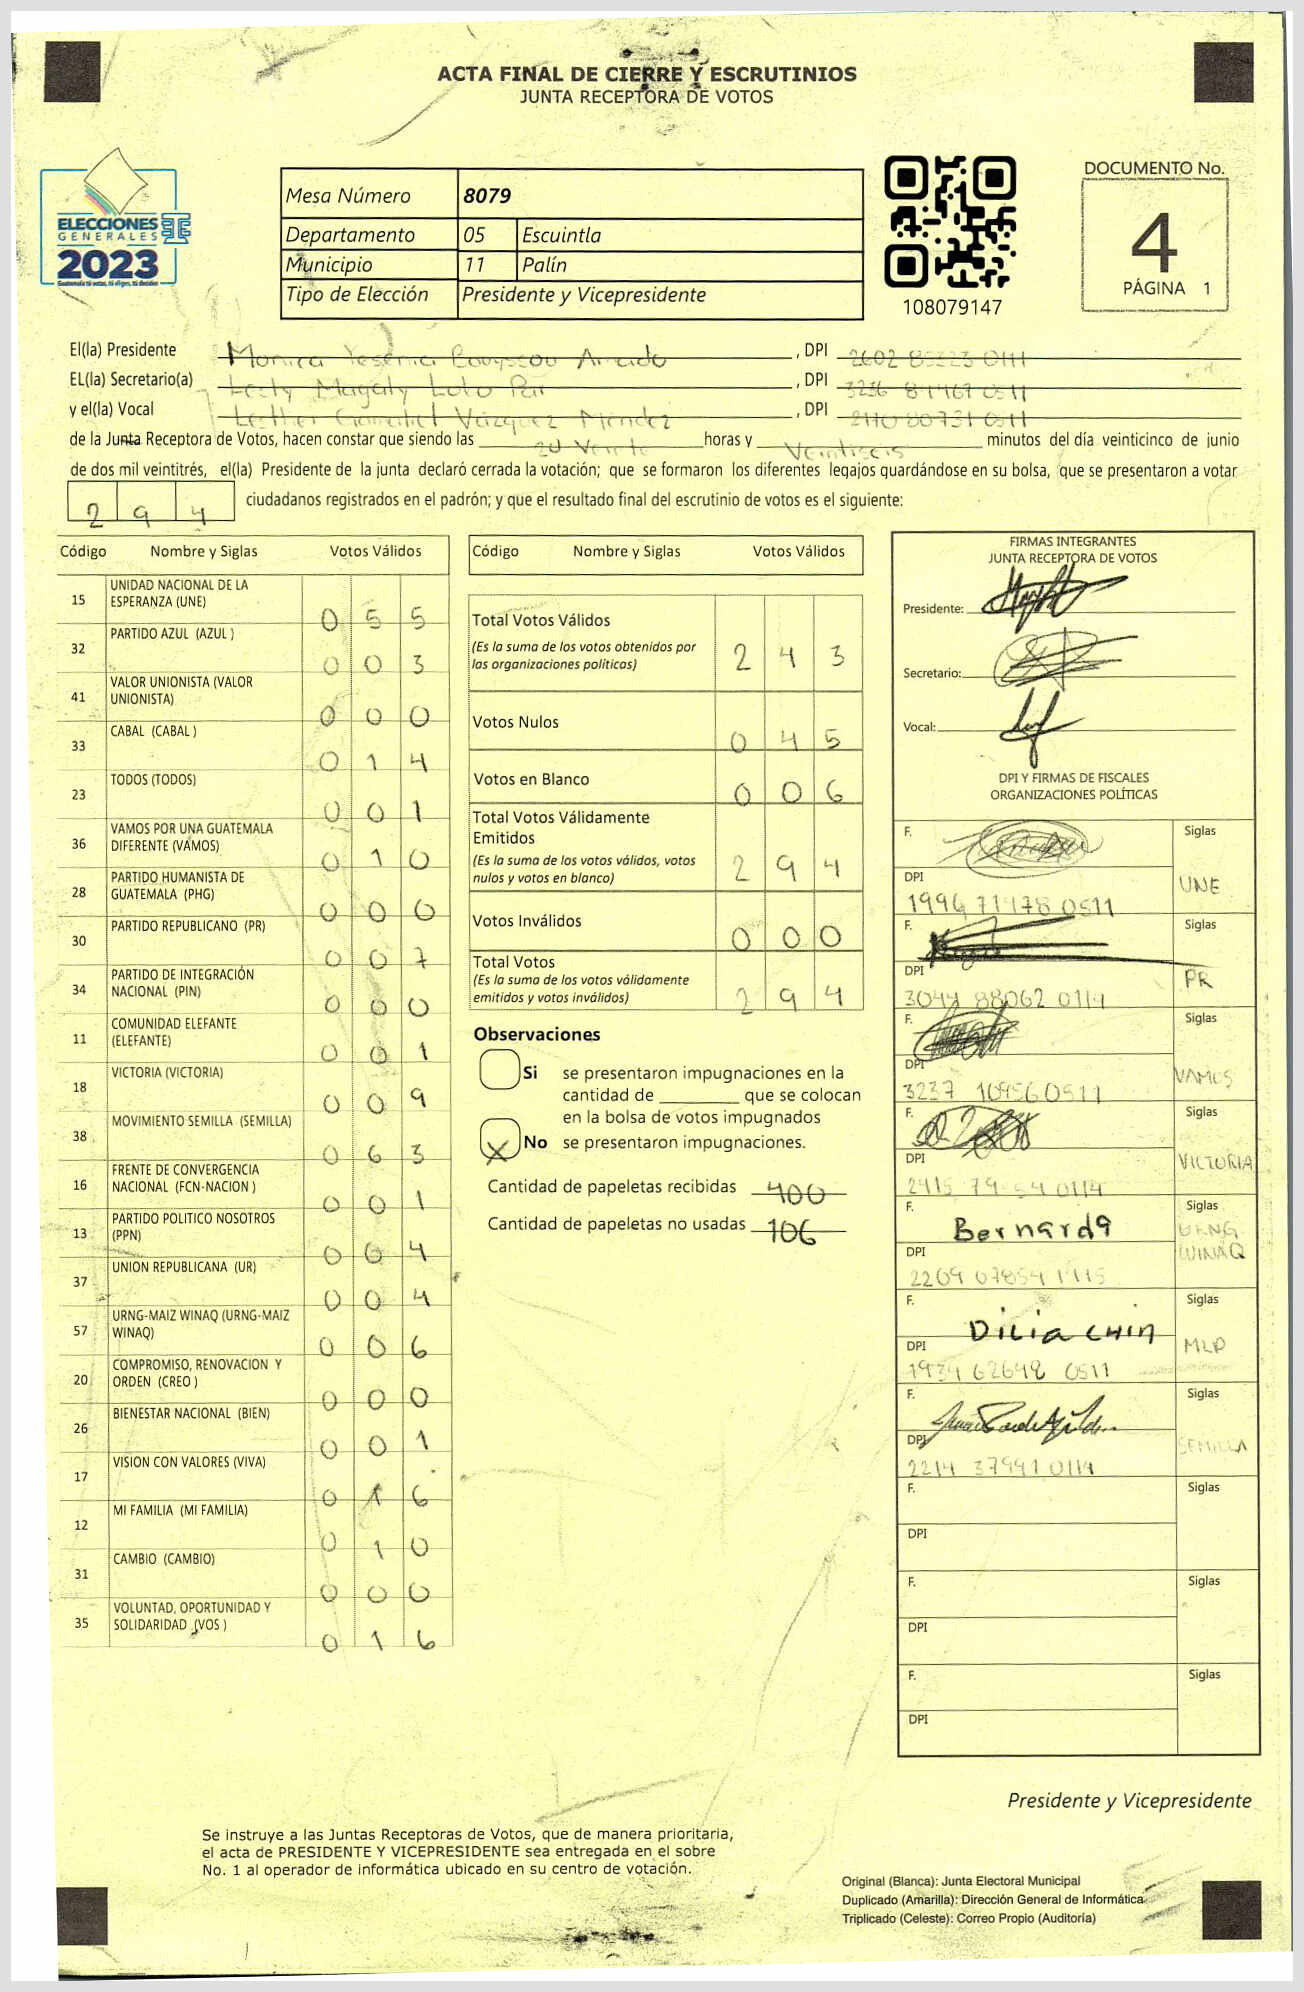 ACTA FINAL DE CIERRE Y ESCRUTINIOS
JUNTA RECEPTORA DE VOTOS
ELECCIONES
GENERALES
2023
Guatemala tú votas, tú eliges, tú decides
Mesa Número 8079
Departamento 05 Escuintla
Municipio 11 Palín
Tipo de Elección Presidente y Vicepresidente
108079147
DOCUMENTO No.
4
PÁGINA 1
El(la) Presidente Monica Yesenia Amado , DPI 2602 85323 0111
EL(la) Secretario(a) Lesly Magaly Lobo , DPI 3236 0511
y el(la) Vocal Lesther Gamaliel Vázquez Méndez , DPI 2110 80731 0511
de la Junta Receptora de Votos, hacen constar que siendo las 20 Veinte horas y Veintiseis minutos del día veinticinco de junio
de dos mil veintitrés, el(la) Presidente de la junta declaró cerrada la votación; que se formaron los diferentes legajos guardándose en su bolsa, que se presentaron a votar
2 9 4 ciudadanos registrados en el padrón; y que el resultado final del escrutinio de votos es el siguiente:
Código Nombre y Siglas Votos Válidos
15 UNIDAD NACIONAL DE LA ESPERANZA (UNE) 0 5 5
32 PARTIDO AZUL (AZUL ) 0 0 3
41 VALOR UNIONISTA (VALOR UNIONISTA) 0 0 0
33 CABAL (CABAL ) 0 1 4
23 TODOS (TODOS) 0 0 1
36 VAMOS POR UNA GUATEMALA DIFERENTE (VAMOS) 0 1 0
28 PARTIDO HUMANISTA DE GUATEMALA (PHG) 0 0 0
30 PARTIDO REPUBLICANO (PR) 0 0 7
34 PARTIDO DE INTEGRACIÓN NACIONAL (PIN) 0 0 0
11 COMUNIDAD ELEFANTE (ELEFANTE) 0 0 1
18 VICTORIA (VICTORIA) 0 0 9
38 MOVIMIENTO SEMILLA (SEMILLA) 0 6 3
16 FRENTE DE CONVERGENCIA NACIONAL (FCN-NACION ) 0 0 1
13 PARTIDO POLITICO NOSOTROS (PPN) 0 0 4
37 UNION REPUBLICANA (UR) 0 0 4
57 URNG-MAIZ WINAQ (URNG-MAIZ WINAQ) 0 0 6
20 COMPROMISO, RENOVACION Y ORDEN (CREO ) 0 0 0
26 BIENESTAR NACIONAL (BIEN) 0 0 1
17 VISION CON VALORES (VIVA) 0 1 6
12 MI FAMILIA (MI FAMILIA) 0 1 0
31 CAMBIO (CAMBIO) 0 0 0
35 VOLUNTAD, OPORTUNIDAD Y SOLIDARIDAD (VOS ) 0 1 6
Código Nombre y Siglas Votos Válidos
Total Votos Válidos
(Es la suma de los votos obtenidos por
las organizaciones políticas) 2 4 3
Votos Nulos 0 4 5
Votos en Blanco 0 0 6
Total Votos Válidamente
Emitidos
(Es la suma de los votos válidos, votos
nulos y votos en blanco) 2 9 4
Votos Inválidos 0 0 0
Total Votos
(Es la suma de los votos válidamente
emitidos y votos inválidos) 2 9 4
Observaciones
Si se presentaron impugnaciones en la
cantidad de ________ que se colocan
en la bolsa de votos impugnados
X No se presentaron impugnaciones.
Cantidad de papeletas recibidas 400
Cantidad de papeletas no usadas 106
FIRMAS INTEGRANTES
JUNTA RECEPTORA DE VOTOS
Presidente:
Secretario:
Vocal:
DPI Y FIRMAS DE FISCALES
ORGANIZACIONES POLÍTICAS
F. Siglas
DPI UNE
1996 71478 0511
F. Siglas
DPI PR
3044 88062 0114
F. Siglas
DPI VAMOS
3237 10956 0511
F. Siglas
DPI VICTORIA
2415 0114
F. Bernarda Siglas
URNG
DPI WINAQ
2209 07854 1115
F. Dilia Chin Siglas
DPI MLP
1934 62648 0511
F. Siglas
DPI SEMILLA
2214 37991 0114
F. Siglas
DPI
F. Siglas
DPI
F. Siglas
DPI
Presidente y Vicepresidente
Se instruye a las Juntas Receptoras de Votos, que de manera prioritaria,
el acta de PRESIDENTE Y VICEPRESIDENTE sea entregada en el sobre
No. 1 al operador de informática ubicado en su centro de votación.
Original (Blanca): Junta Electoral Municipal
Duplicado (Amarilla): Dirección General de Informática
Triplicado (Celeste): Correo Propio (Auditoría)